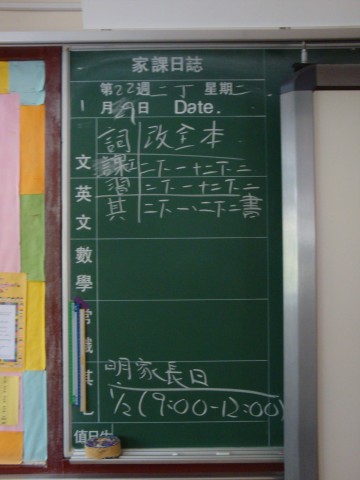 家課日誌
第22週 二 丁 星期二
1月29日 Date.
詞 改全本
文 課 二下一十二下二
英 習 二下一十二下二
文 其 二下一、二下二書
數
學
常
識
其
明家長日
1/2 (9:00-12:00)
值日生